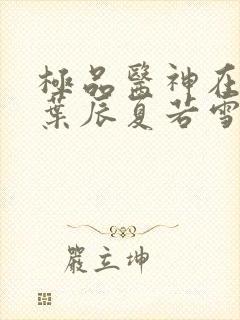 極品醫神在
葉辰夏若雪
嚴立坤